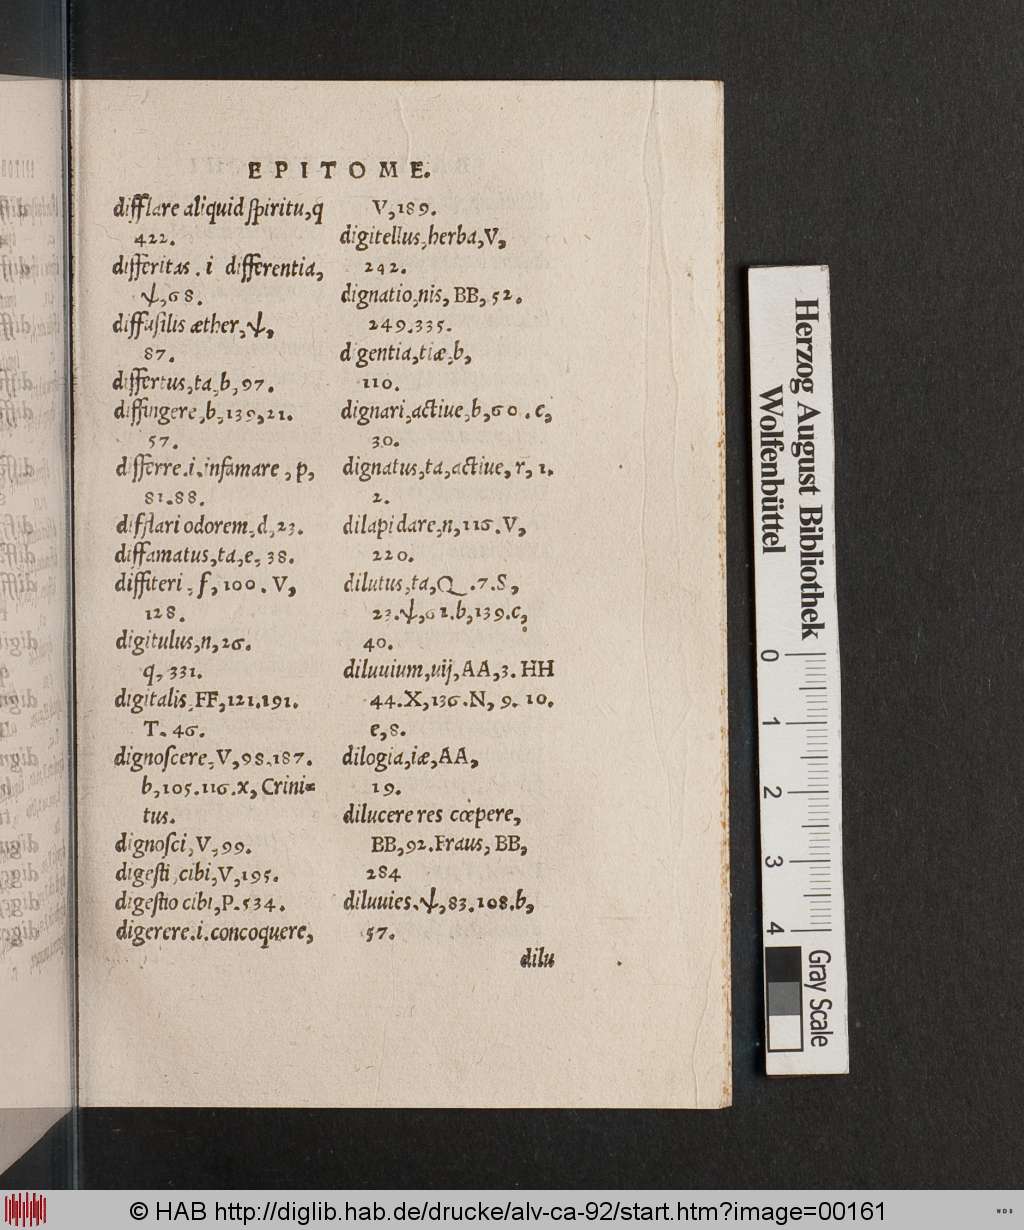 EPITOME.
difflare aliquid ſpiritu,q
422.
differitas.i differentia,
ѱ,68.
diffuſilis æther,ѱ,
87.
differtus,ta,b,97.
diffingere,b,139,21.
57.
differre.i.infamare,p,
81.88.
difflari odorem,d,23.
diffamatus,ta,e,38.
diffiteri,f,100.V,
128.
digitulus,n,26.
q,331.
digitalis,FF,121.191.
T.46.
dignoſcere,V,98.187.
b,105.116.x,Crini=
tus.
dignoſci,V,99.
digeſti cibi,V,195.
digeſtio cibi,P.534.
digerere.i.concoquere,
V,189.
digitellus,herba,V,
242.
dignatio,nis,BB,52.
249.335.
digentia,tiæ,b,
110.
dignari,actiue,b,60.c,
30.
dignatus,ta,actiue,r,1.
2.
dilapidare,n,116.V,
220.
dilutus,ta,Q.7.S,
23.ѱ,61.b,139.c,
40.
diluuium,uij,AA,3.HH
44.X,136.N,9.10.
e,8.
dilogia,iæ,AA,
19.
dilucere res cœpere,
BB,92.Fraus,BB,
284
diluuies.ѱ,83.108.b,
57.
dilu
Herzog August Bibliothek
Wolfenbüttel
0 1 2 3 4
Gray Scale
© HAB http://diglib.hab.de/drucke/alv-ca-92/start.htm?image=00161